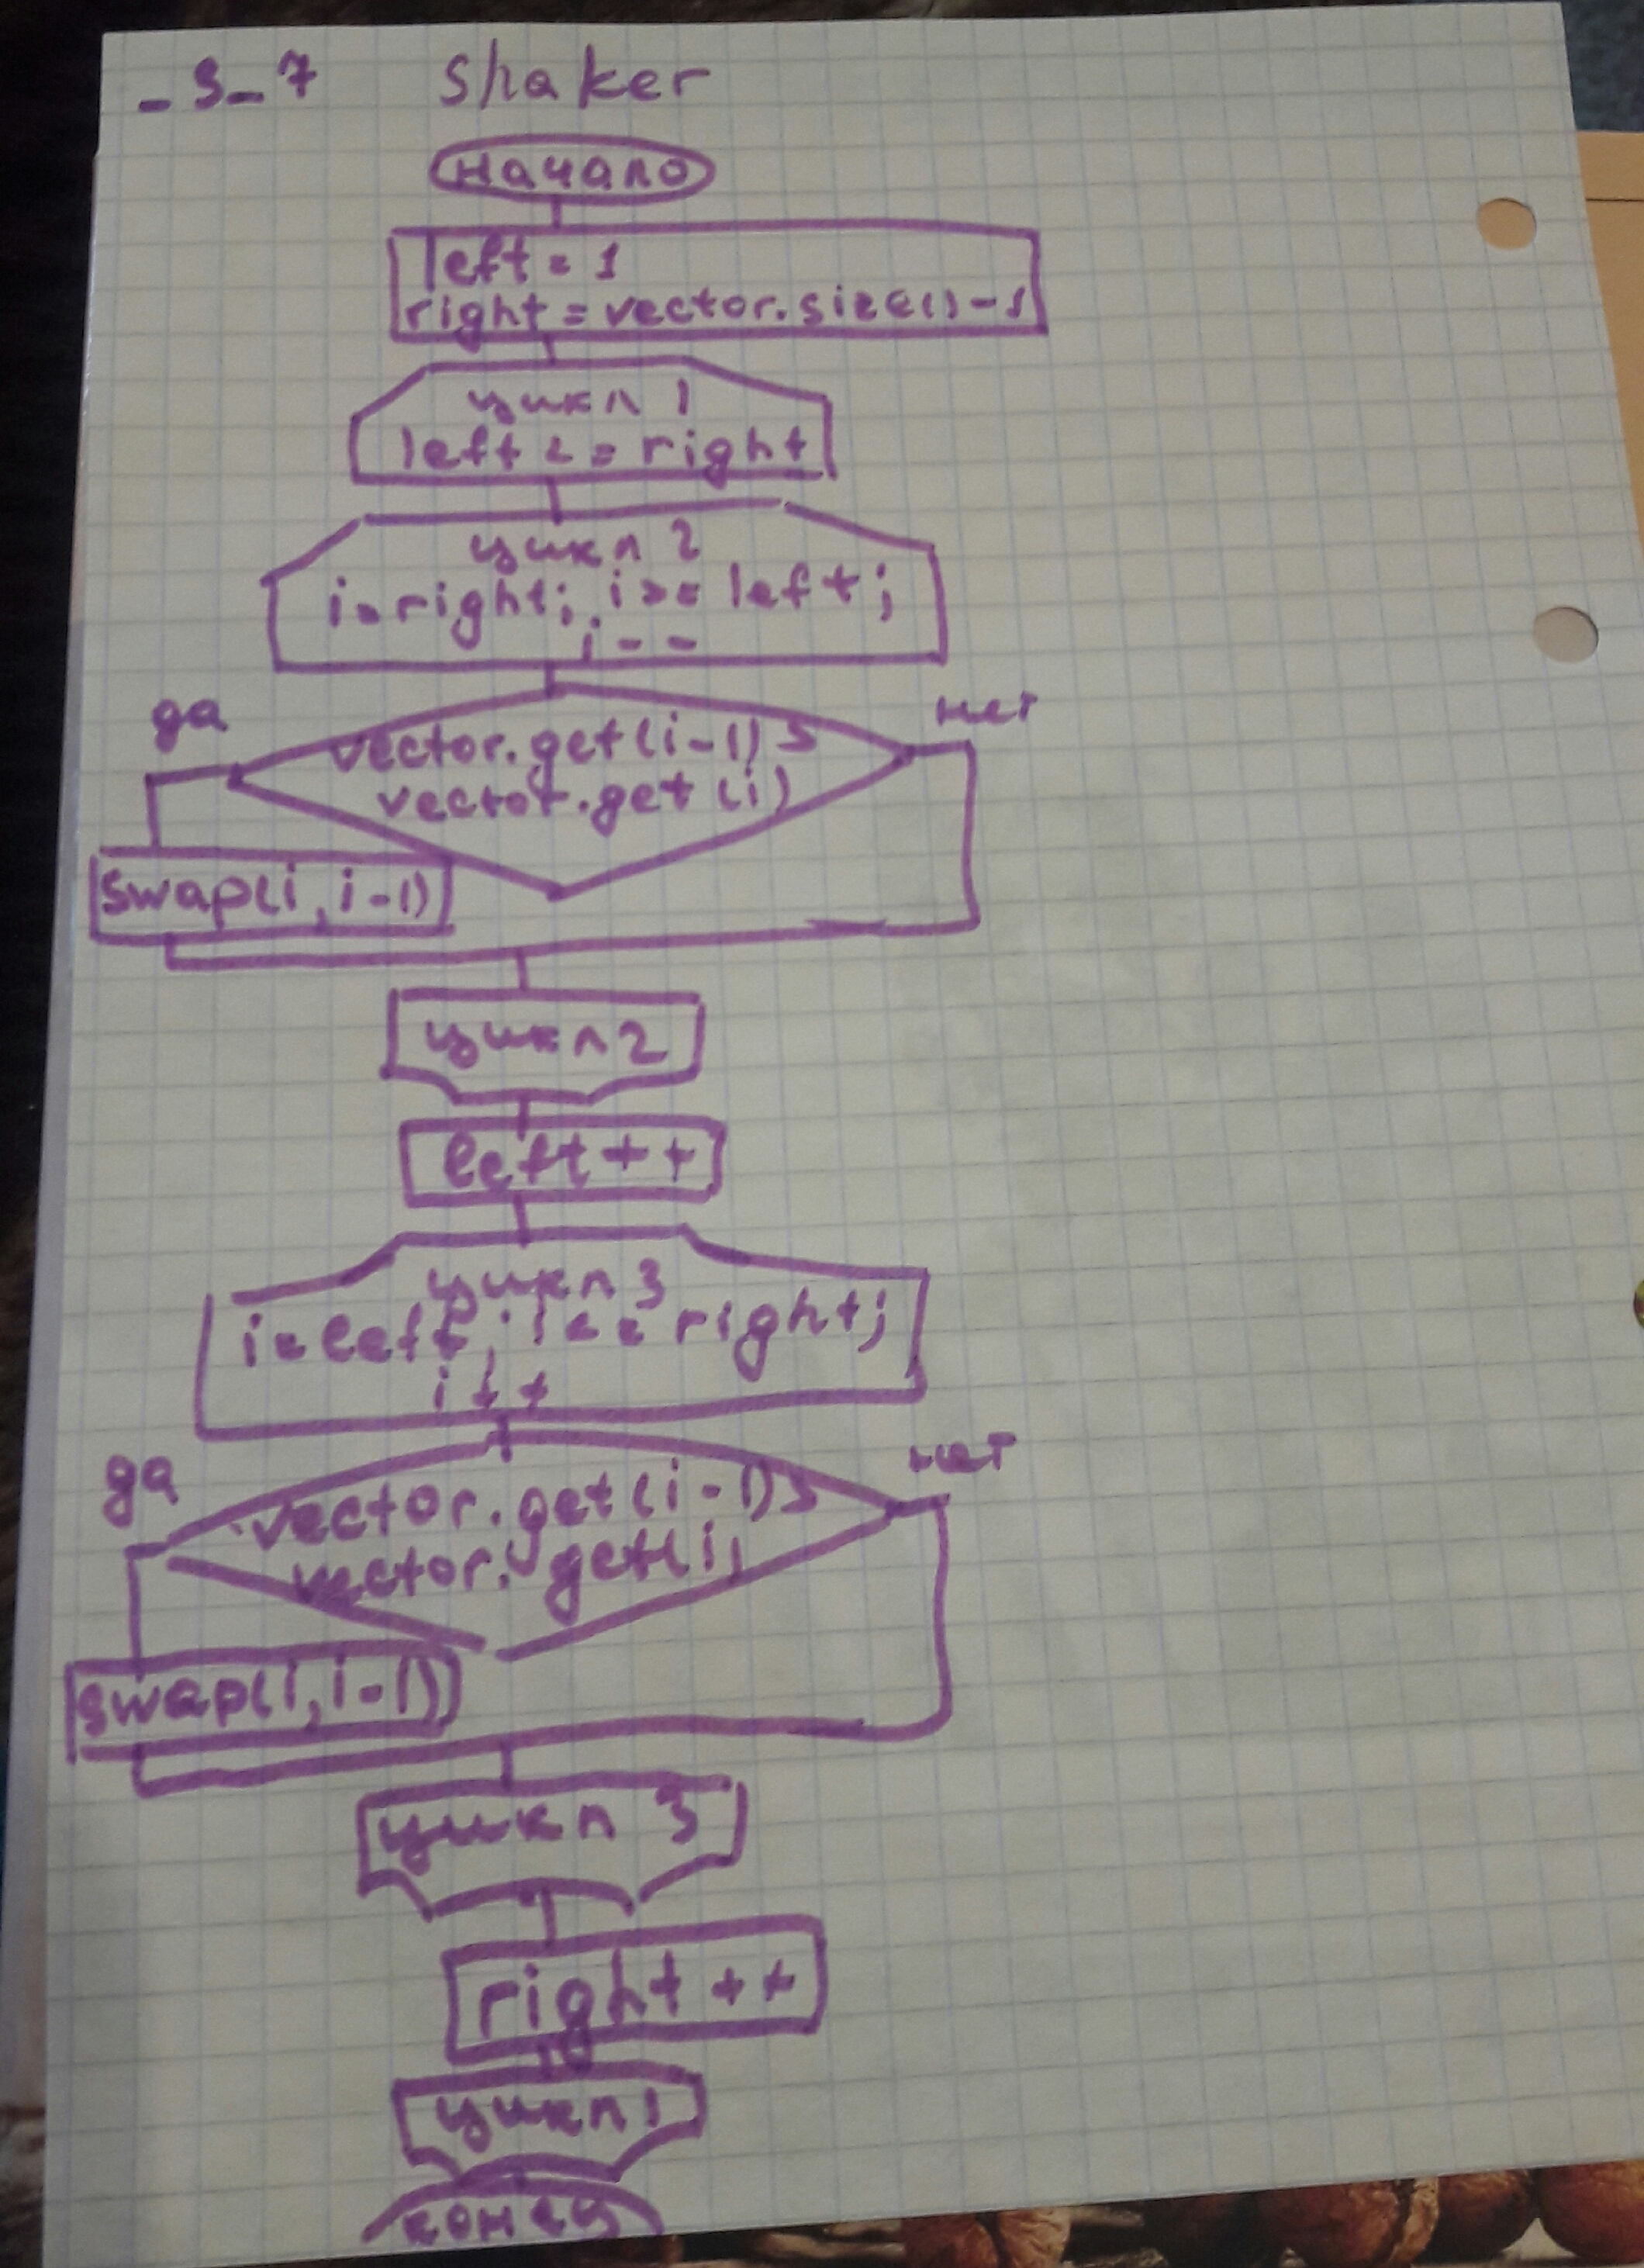 _S_7 Shaker
начало
left = 1
right = vector.size()-1
цикл 1
left <= right
цикл 2
i=right; i>= left;
i--
да
нет
vector.get(i-1)>
vector.get(i)
swap(i, i-1)
цикл 2
left++
цикл 3
i=left; i<= right;
i++
да
нет
vector.get(i-1)>
vector.get(i)
swap(i, i-1)
цикл 3
right++
цикл 1
конец